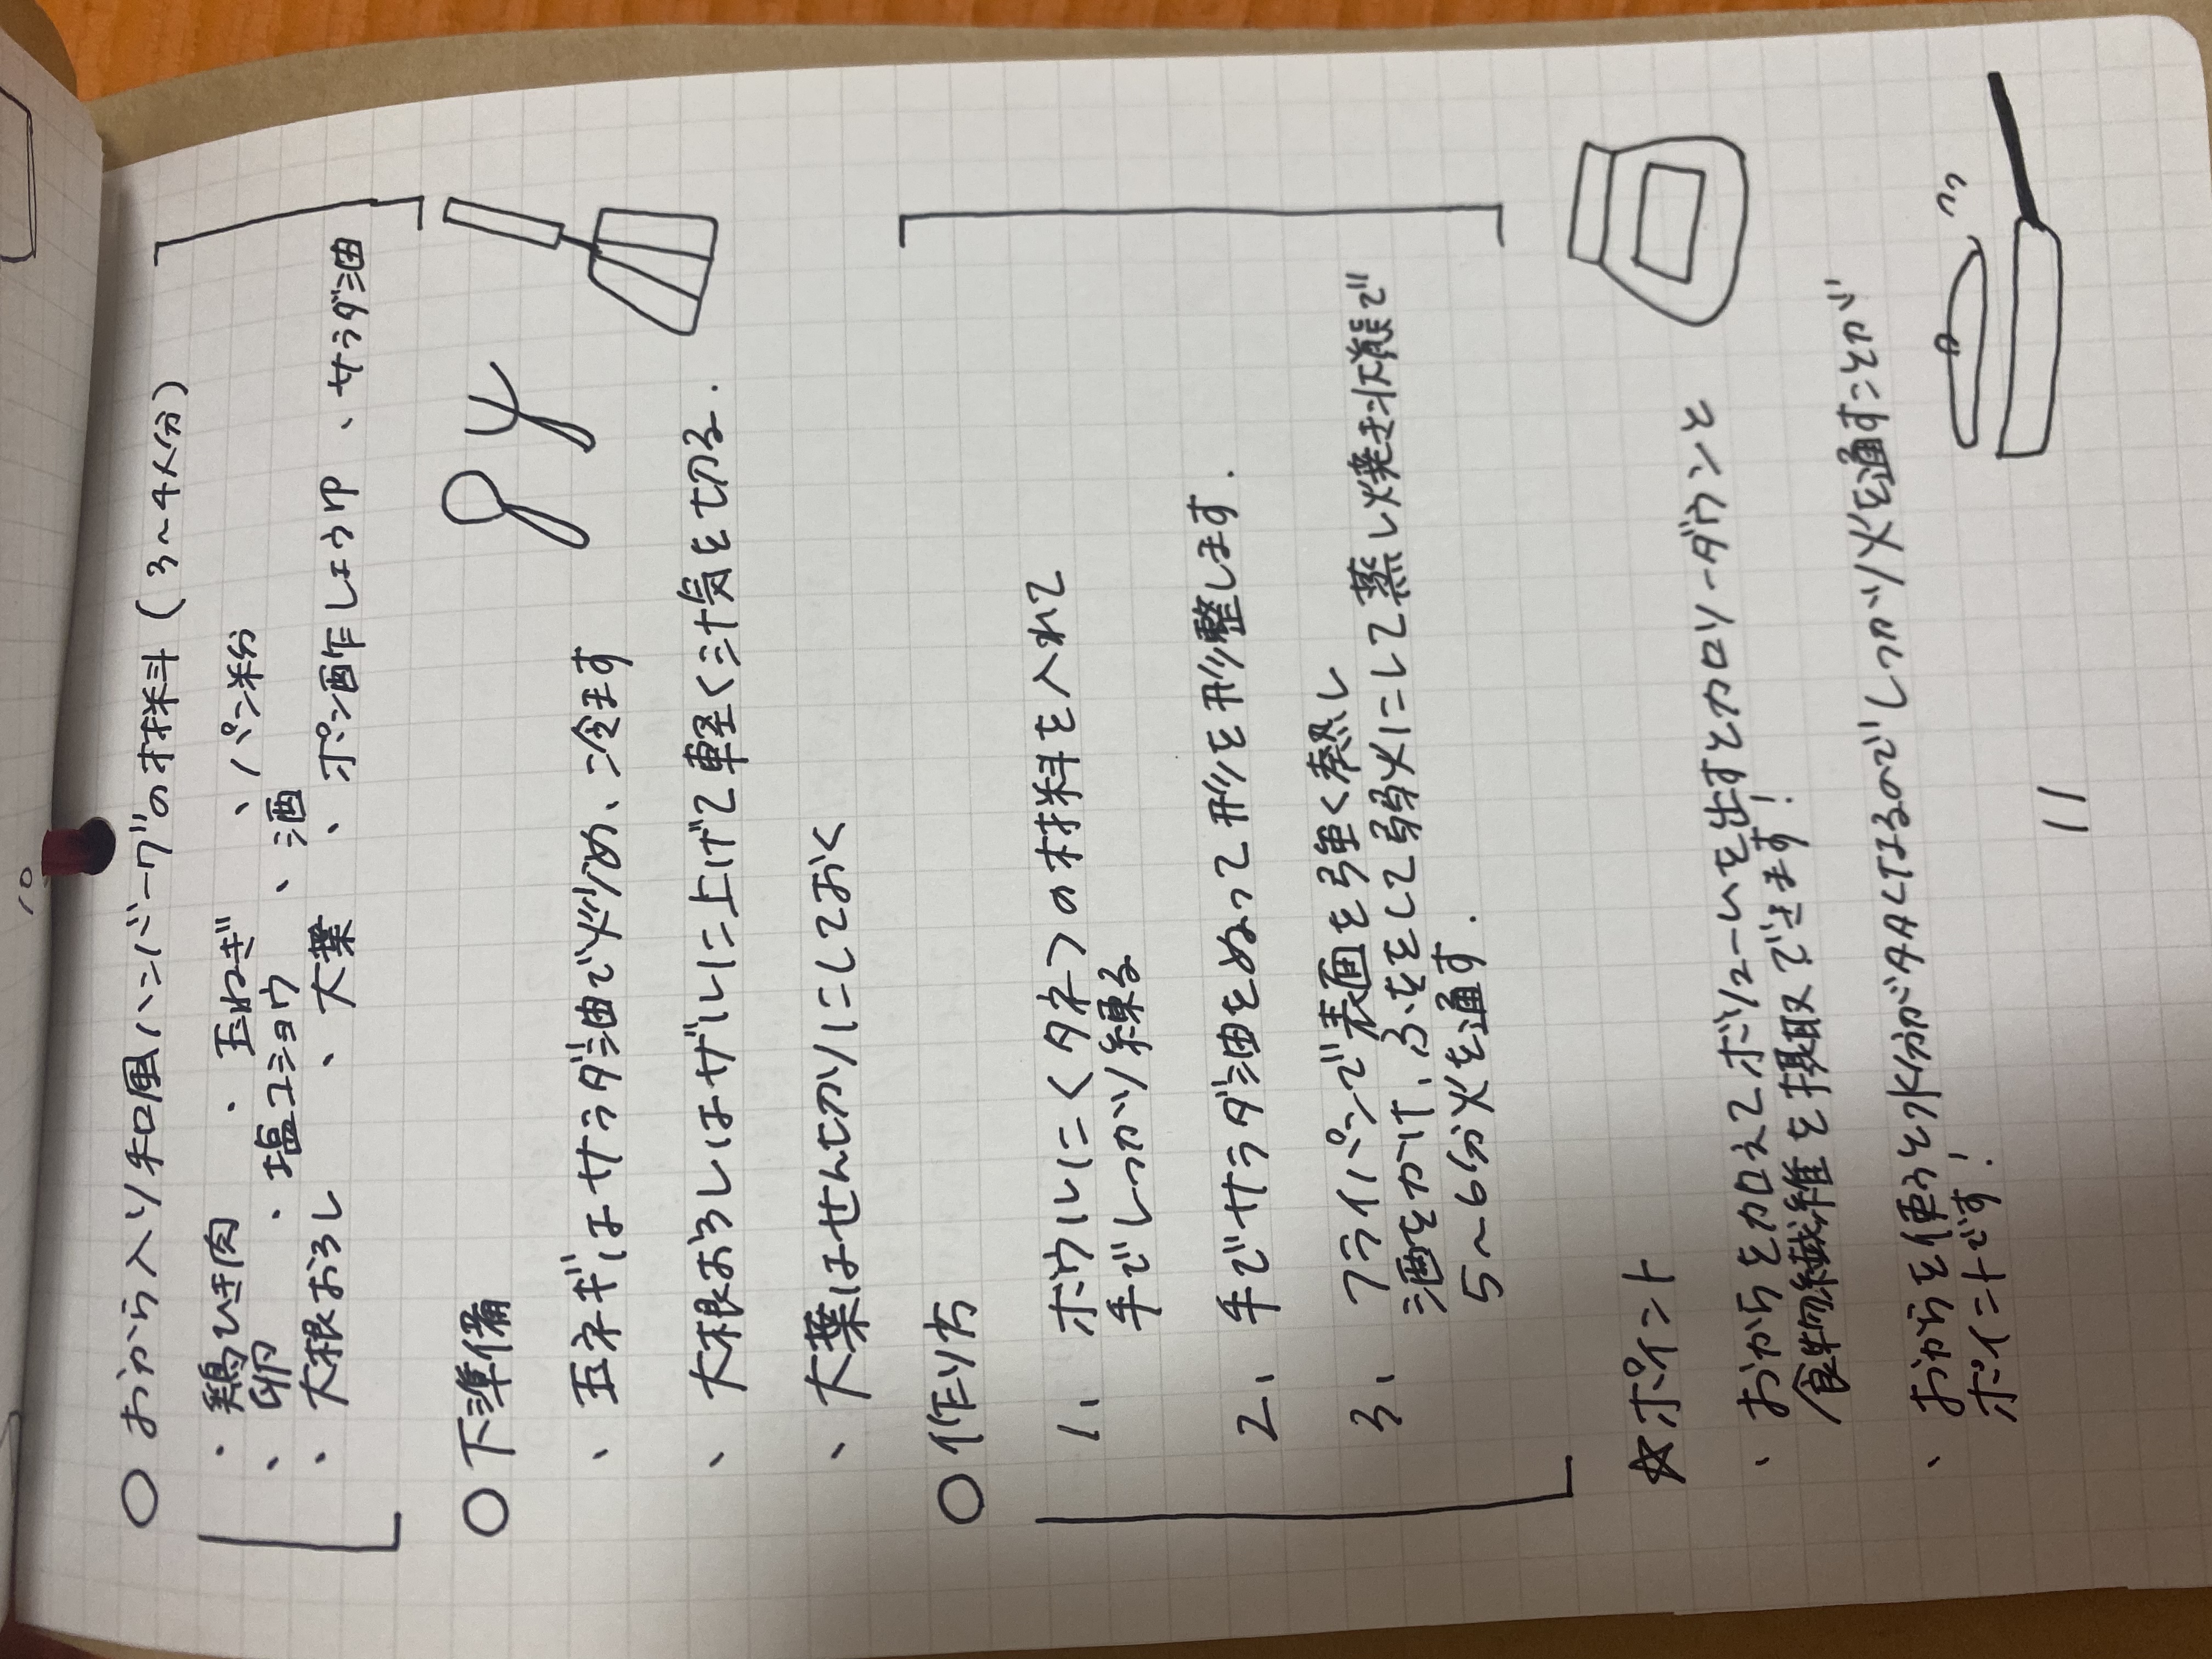 10
○ おから入り和風ハンバーグの材料(3~4人分)
・鶏ひき肉 ・玉ねぎ 、パン粉
、卵 、塩コショウ 、酒
、大根おろし 、大葉 、ポン酢しょうゆ 、サラダ油
○ 下準備
、玉ネギはサラダ油で炒め、冷ます
、大根おろしはザルに上げて軽く汁気を切る.
、大葉はせん切りにしておく
○ 作り方
1、ボウルに<タネ>の材料を入れて
手でしっかり練る
2、手でサラダ油をぬって形を形整します.
3、フライパンで表面を強く熱し
酒をかけ、ふたをして弱火にして蒸し焼き状態で
5~6分火を通す.
☆ポイント
、おからを加えてボリュームを出すとカロリーダウンと
食物繊維を摂取できます!
、おからを使うと水分が多くなるのでしっかり火を通すことが
ポイントです!
11